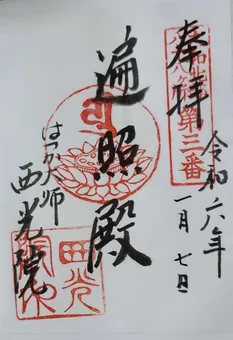 奉拝
第三番
令和六年
一月七日
遍照殿
はつか大師
西光院
西光